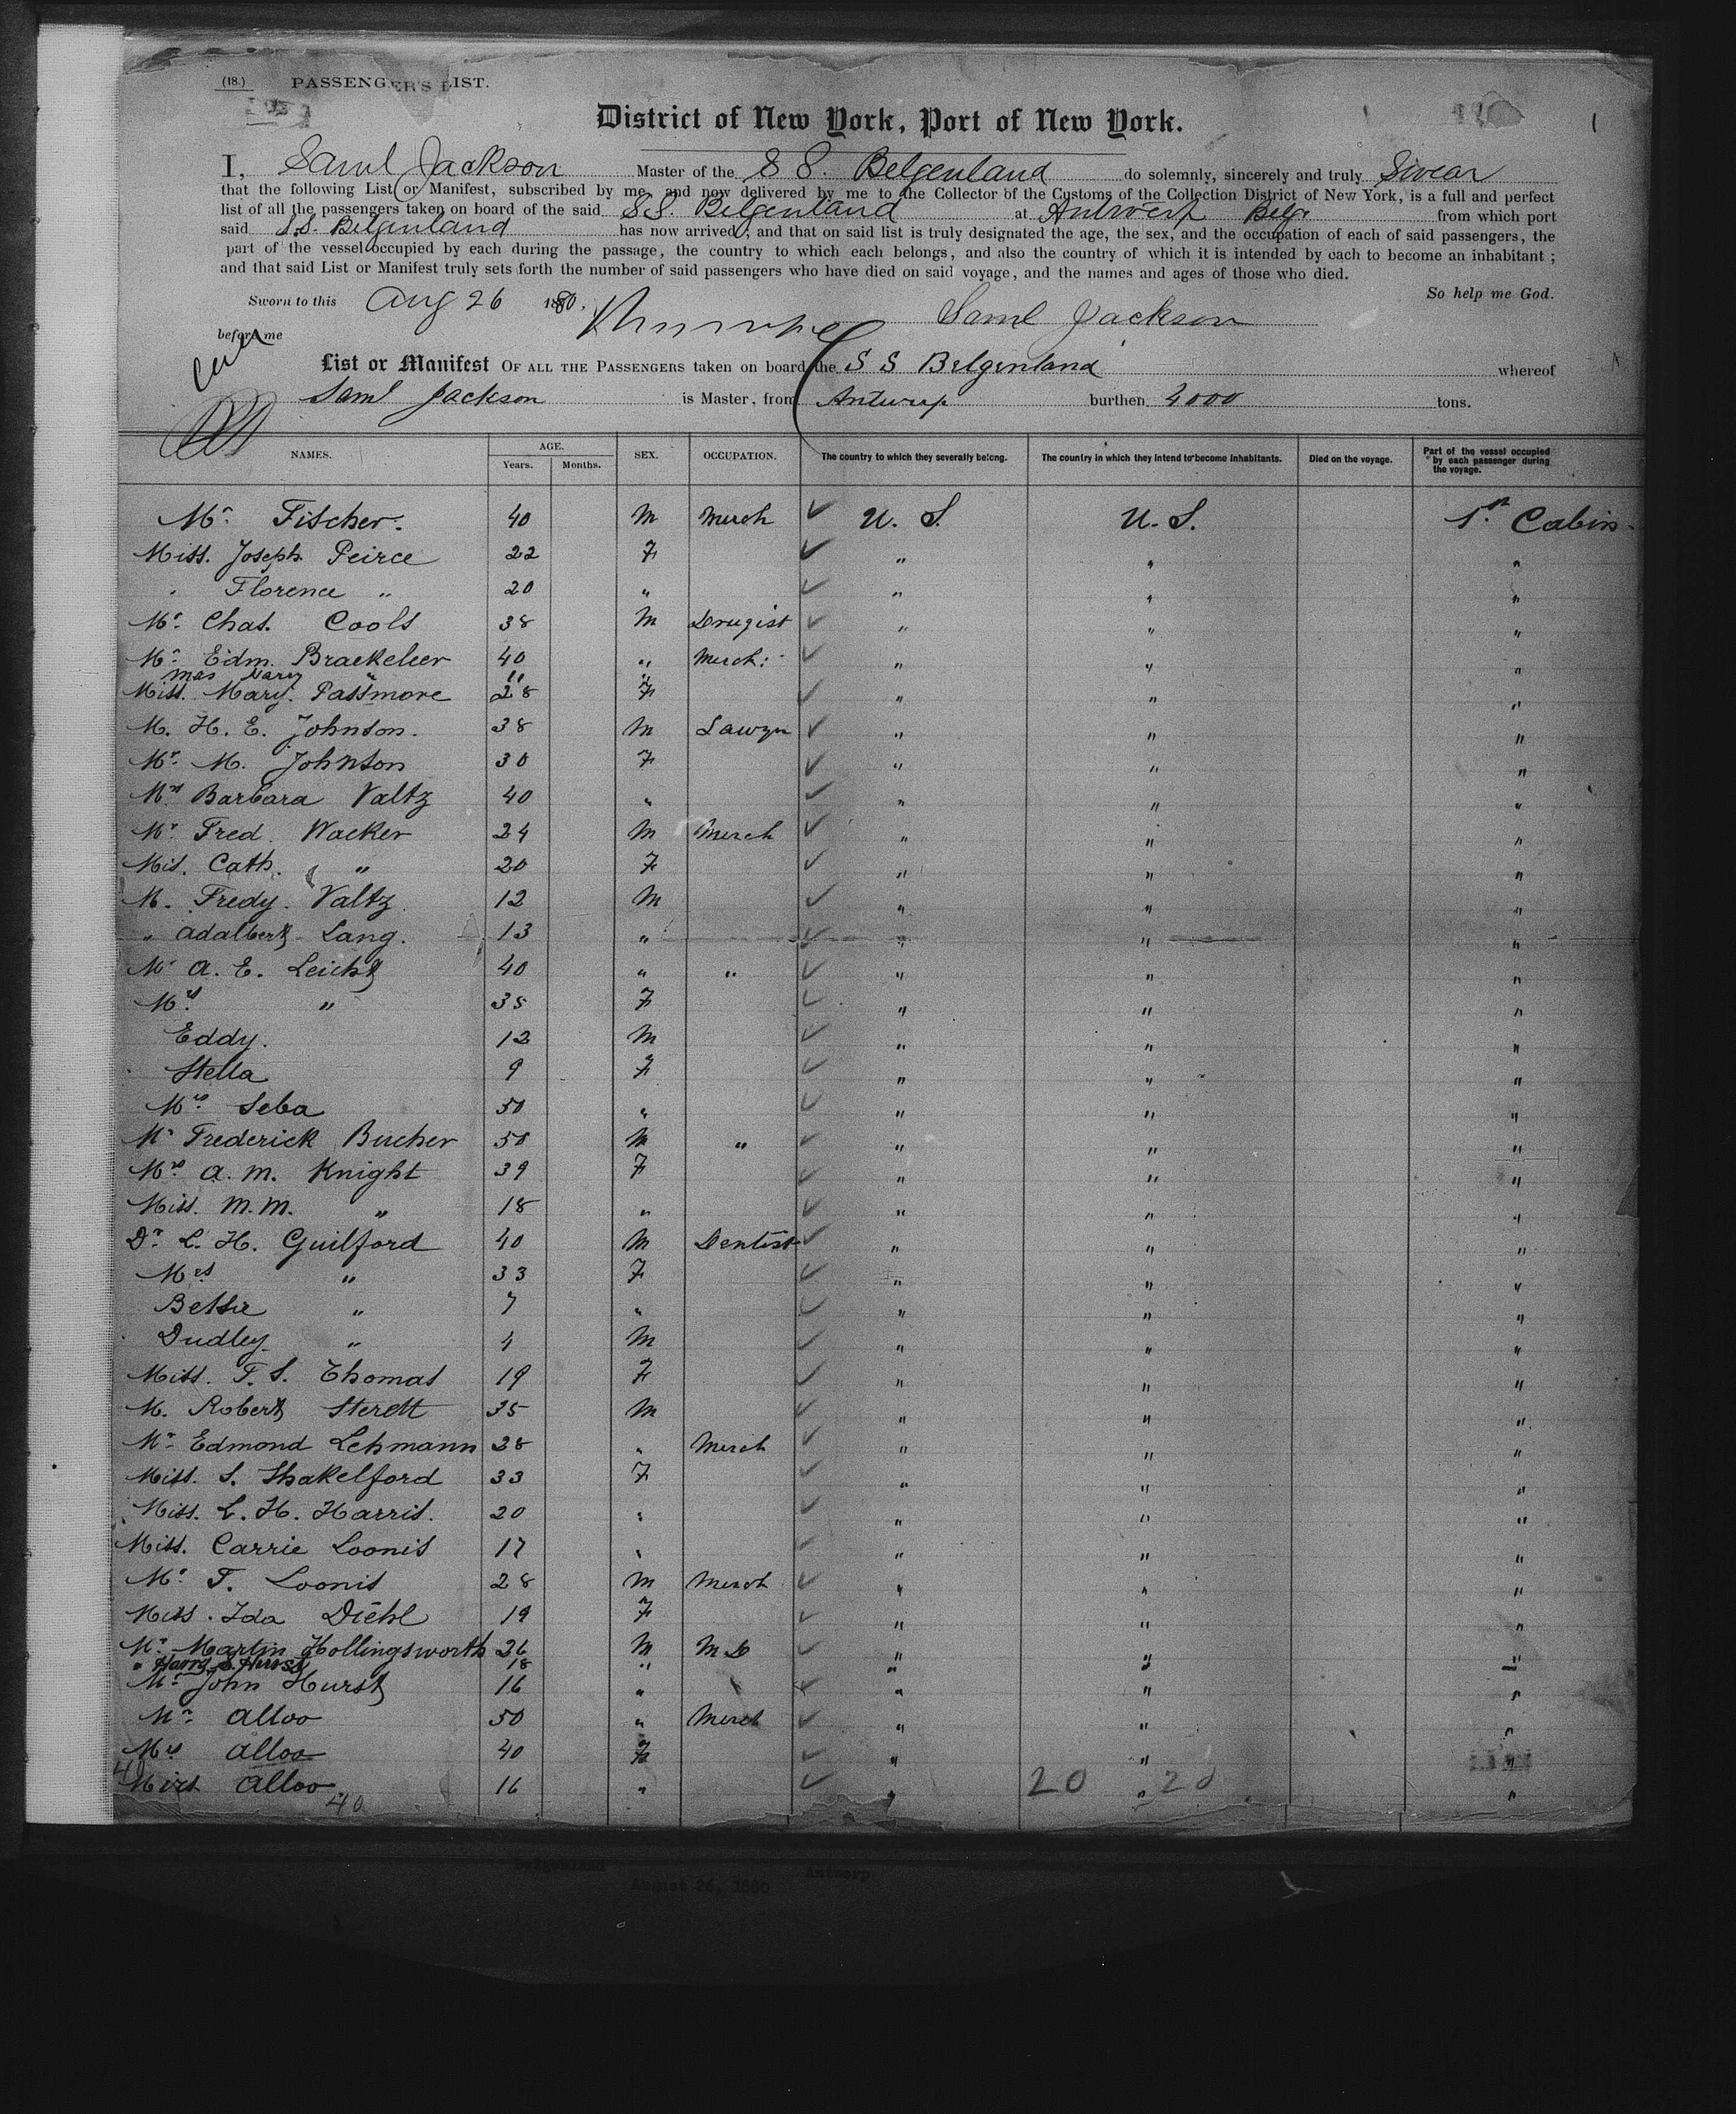 (18.) PASSENGER'S LIST.
District of New York, Port of New York.
I, Saml Jackson Master of the S S. Belgenland do solemnly, sincerely and truly Swear
that the following List or Manifest, subscribed by me, and now delivered by me to the Collector of the Customs of the Collection District of New York, is a full and perfect
list of all the passengers taken on board of the said S.S. Belgenland at Antwerp Belg. from which port
said S.S. Belgenland has now arrived; and that on said list is truly designated the age, the sex, and the occupation of each of said passengers, the
part of the vessel occupied by each during the passage, the country to which each belongs, and also the country of which it is intended by each to become an inhabitant;
and that said List or Manifest truly sets forth the number of said passengers who have died on said voyage, and the names and ages of those who died.
So help me God.
Sworn to this Aug 26 1880. Saml Jackson
before me
List or Manifest OF ALL THE PASSENGERS taken on board the S S Belgenland whereof
Saml Jackson is Master, from Antwerp burthen 4000 tons.
NAMES. AGE. Years. Months. SEX. OCCUPATION. The country to which they severally belong. The country in which they intend to become inhabitants. Died on the voyage. Part of the vessel occupied by each passenger during the voyage.
Mr. Fischer. 40 M Merch U. S. U. S. 1st Cabin
Miss. Joseph. Peirce 22 F " " "
" Florence " 20 " " " "
Mr. Chas. Cools 38 M Drugist " " "
Mr. Edm. Braekeleer 40 " Merch: " " "
Mas Mary " 11 "
Miss. Mary. Passmore 28 F " " "
M. H. E. Johnson. 38 M Lawyr " " "
Mr. M. Johnson 30 F " " "
Mrs Barbara Valtz 40 " " " "
Mr. Fred. Wacker 24 M Merch " " "
Mis. Cath. " 20 F " " "
M. Fredy. Valtz 12 M " " "
" Adalbert Lang. 13 " " " "
Mr A. E. Leicht 40 " " " " "
Mrs " 35 F " " "
Eddy. 12 M " " "
Stella 9 F " " "
Mrs. Seba 50 " " " "
Mr Frederick Bucher 50 M " " " "
Mrs A. M. Knight 39 F " " "
Miss. M. M. " 18 " " " "
Dr. L. H. Guilford 40 M Dentist " " "
Mrs " 33 F " " "
Betsie " 7 " " " "
Dudley " 4 M " " "
Miss. F. S. Thomas 19 F " " "
M. Robert Sterett 35 M " " "
Mr. Edmond Lehmann 28 " Merch " " "
Miss. S. Shakelford 33 F " " "
Miss. L. H. Harris. 20 " " " "
Miss. Carrie Loonis 17 " " " "
Mr. F. Loonis 28 M Merch " " "
Miss. Ida Diehl 19 F " " "
Mr. Martin Hollingsworth 26 M M D " " "
" Harry S. Hurst 18 " " " "
Mr John Hurst 16 " " " "
Mr. Alloo 50 " Merch " " "
Mrs Alloo 40 F " " "
Miss Alloo 16 " " " "
40 20 20
40
Belgenland Antwerp
August 26, 1880